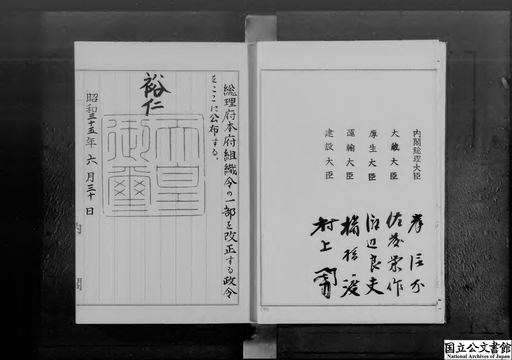 総理府本府組織令の一部を改正する政令
をここに公布する。
裕仁
天皇
御璽
昭和三十五年六月三十日
内閣
内閣総理大臣 岸信介
大蔵大臣 佐藤栄作
厚生大臣 渡辺良夫
運輸大臣 楢橋渡
建設大臣 村上勇
国立公文書館
National Archives of Japan